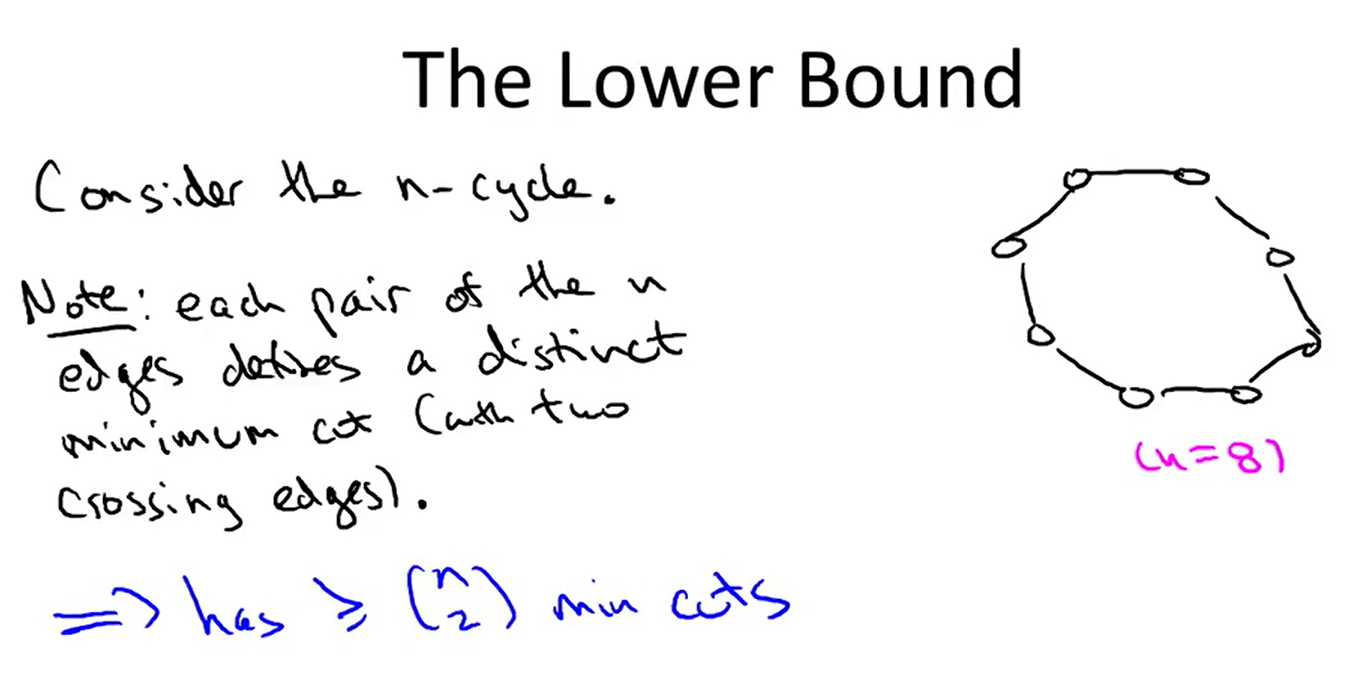 The Lower Bound
Consider the n-cycle.
Note: each pair of the n
edges defines a distinct
minimum cut (with two
crossing edges).
(n=8)
=> has ≥ (n 2) min cuts